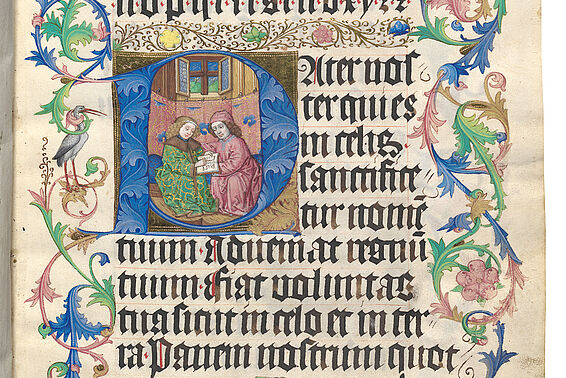 PAter nos
ter qui es
in celis
sanctifice
tur nomē
tuum Adueniat regnū
tuum fiat voluntas
tua sicut in celo et in ter
ra Panem nostrum quot